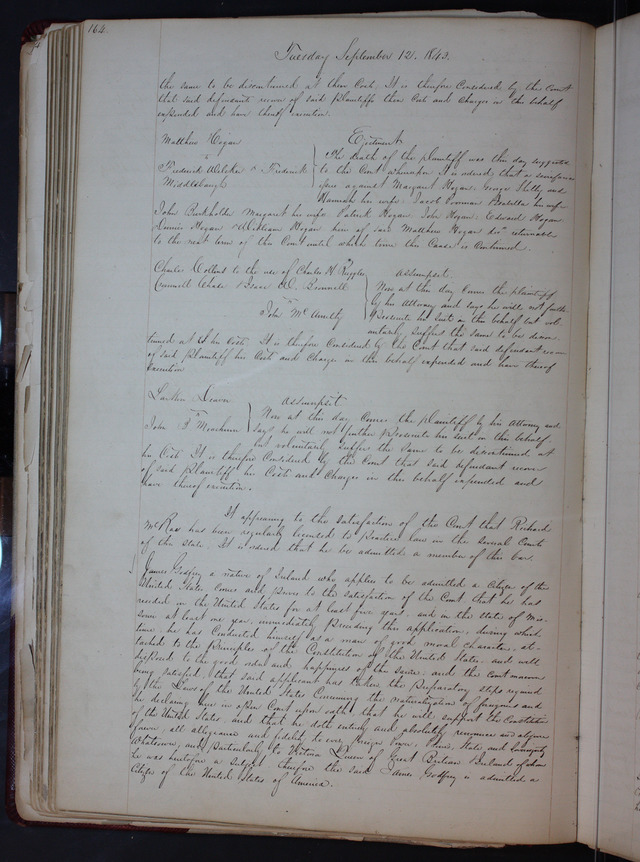 164
Tuesday September 12. 1843.
the same to be discontinued at their Cost. It is therefore Considered by the Court
that said defendant recover of said plaintiffs their Costs and Charges in this behalf
expended and have thereof execution.
Matthew Hogan
vs
Frederick & Frederick
Ejectment
The death of the plaintiff was this day suggested
to the Court whereupon it is ordered that a
against Margaret Hogan, George and
Hannah his wife, Jacob his wife
John Burkholder Margaret his wife Patrick Hogan John Hogan, Edward Hogan
Hogan & William Hogan heirs of said Matthew Hogan returnable
to the next term of this Court until which time the Cause is Continued
Charles to the use of Charles H.
& Isaac D.
vs
John
assumpsit
Now at this day Comes the plaintiff
by his attorney and says he will not further
Prosecute his suit in this behalf but vol-
untarily suffers the same to be discon-
tinued at his Cost. It is therefore Considered by the Court that said defendant recover
of said plaintiff his Costs and Charges in this behalf expended and have thereof
Execution
Larkin
vs
John
assumpsit
Now at this day Comes the plaintiff by his attorney and
says he will not further prosecute his suit in this behalf
but voluntarily suffers the same to be discontinued at
his Cost It is therefore Considered by the Court that said defendant recover
of said plaintiff his Costs and Charges in this behalf expended and
have thereof execution.
It appearing to the satisfaction of the Court that Richard
has been regularly licensed to practice law in the several Courts
of this state. It is ordered that he be admitted a member of this bar.
James Godfrey a native of Ireland who applies to be admitted a Citizen of the
United States Comes and proves to the satisfaction of the Court that he has
resided in the United States for at least five years, and in the state of Mis-
souri at least one year, immediately preceding this application, during which
time he has Conducted himself as a man of good moral character, at-
tached to the principles of the Constitution of the United States, and well
disposed to the good order and happiness of the same, and the Court moreover
being satisfied, that said applicant has taken the preparatory steps required
by the Laws of the United States Concerning the naturalization of foreigners and
he declaring here in open Court upon oath, that he will support the Constitution
of the United States, and that he doth entirely and absolutely renounce and abjure
forever, all allegiance and fidelity to every foreign Power, Prince, State and Sovereignty
Whatsoever, and particularly to Victoria Queen of Great Britain & Ireland of whom
he was heretofore a subject therefore the said James Godfrey is admitted a
Citizen of the United States of America.